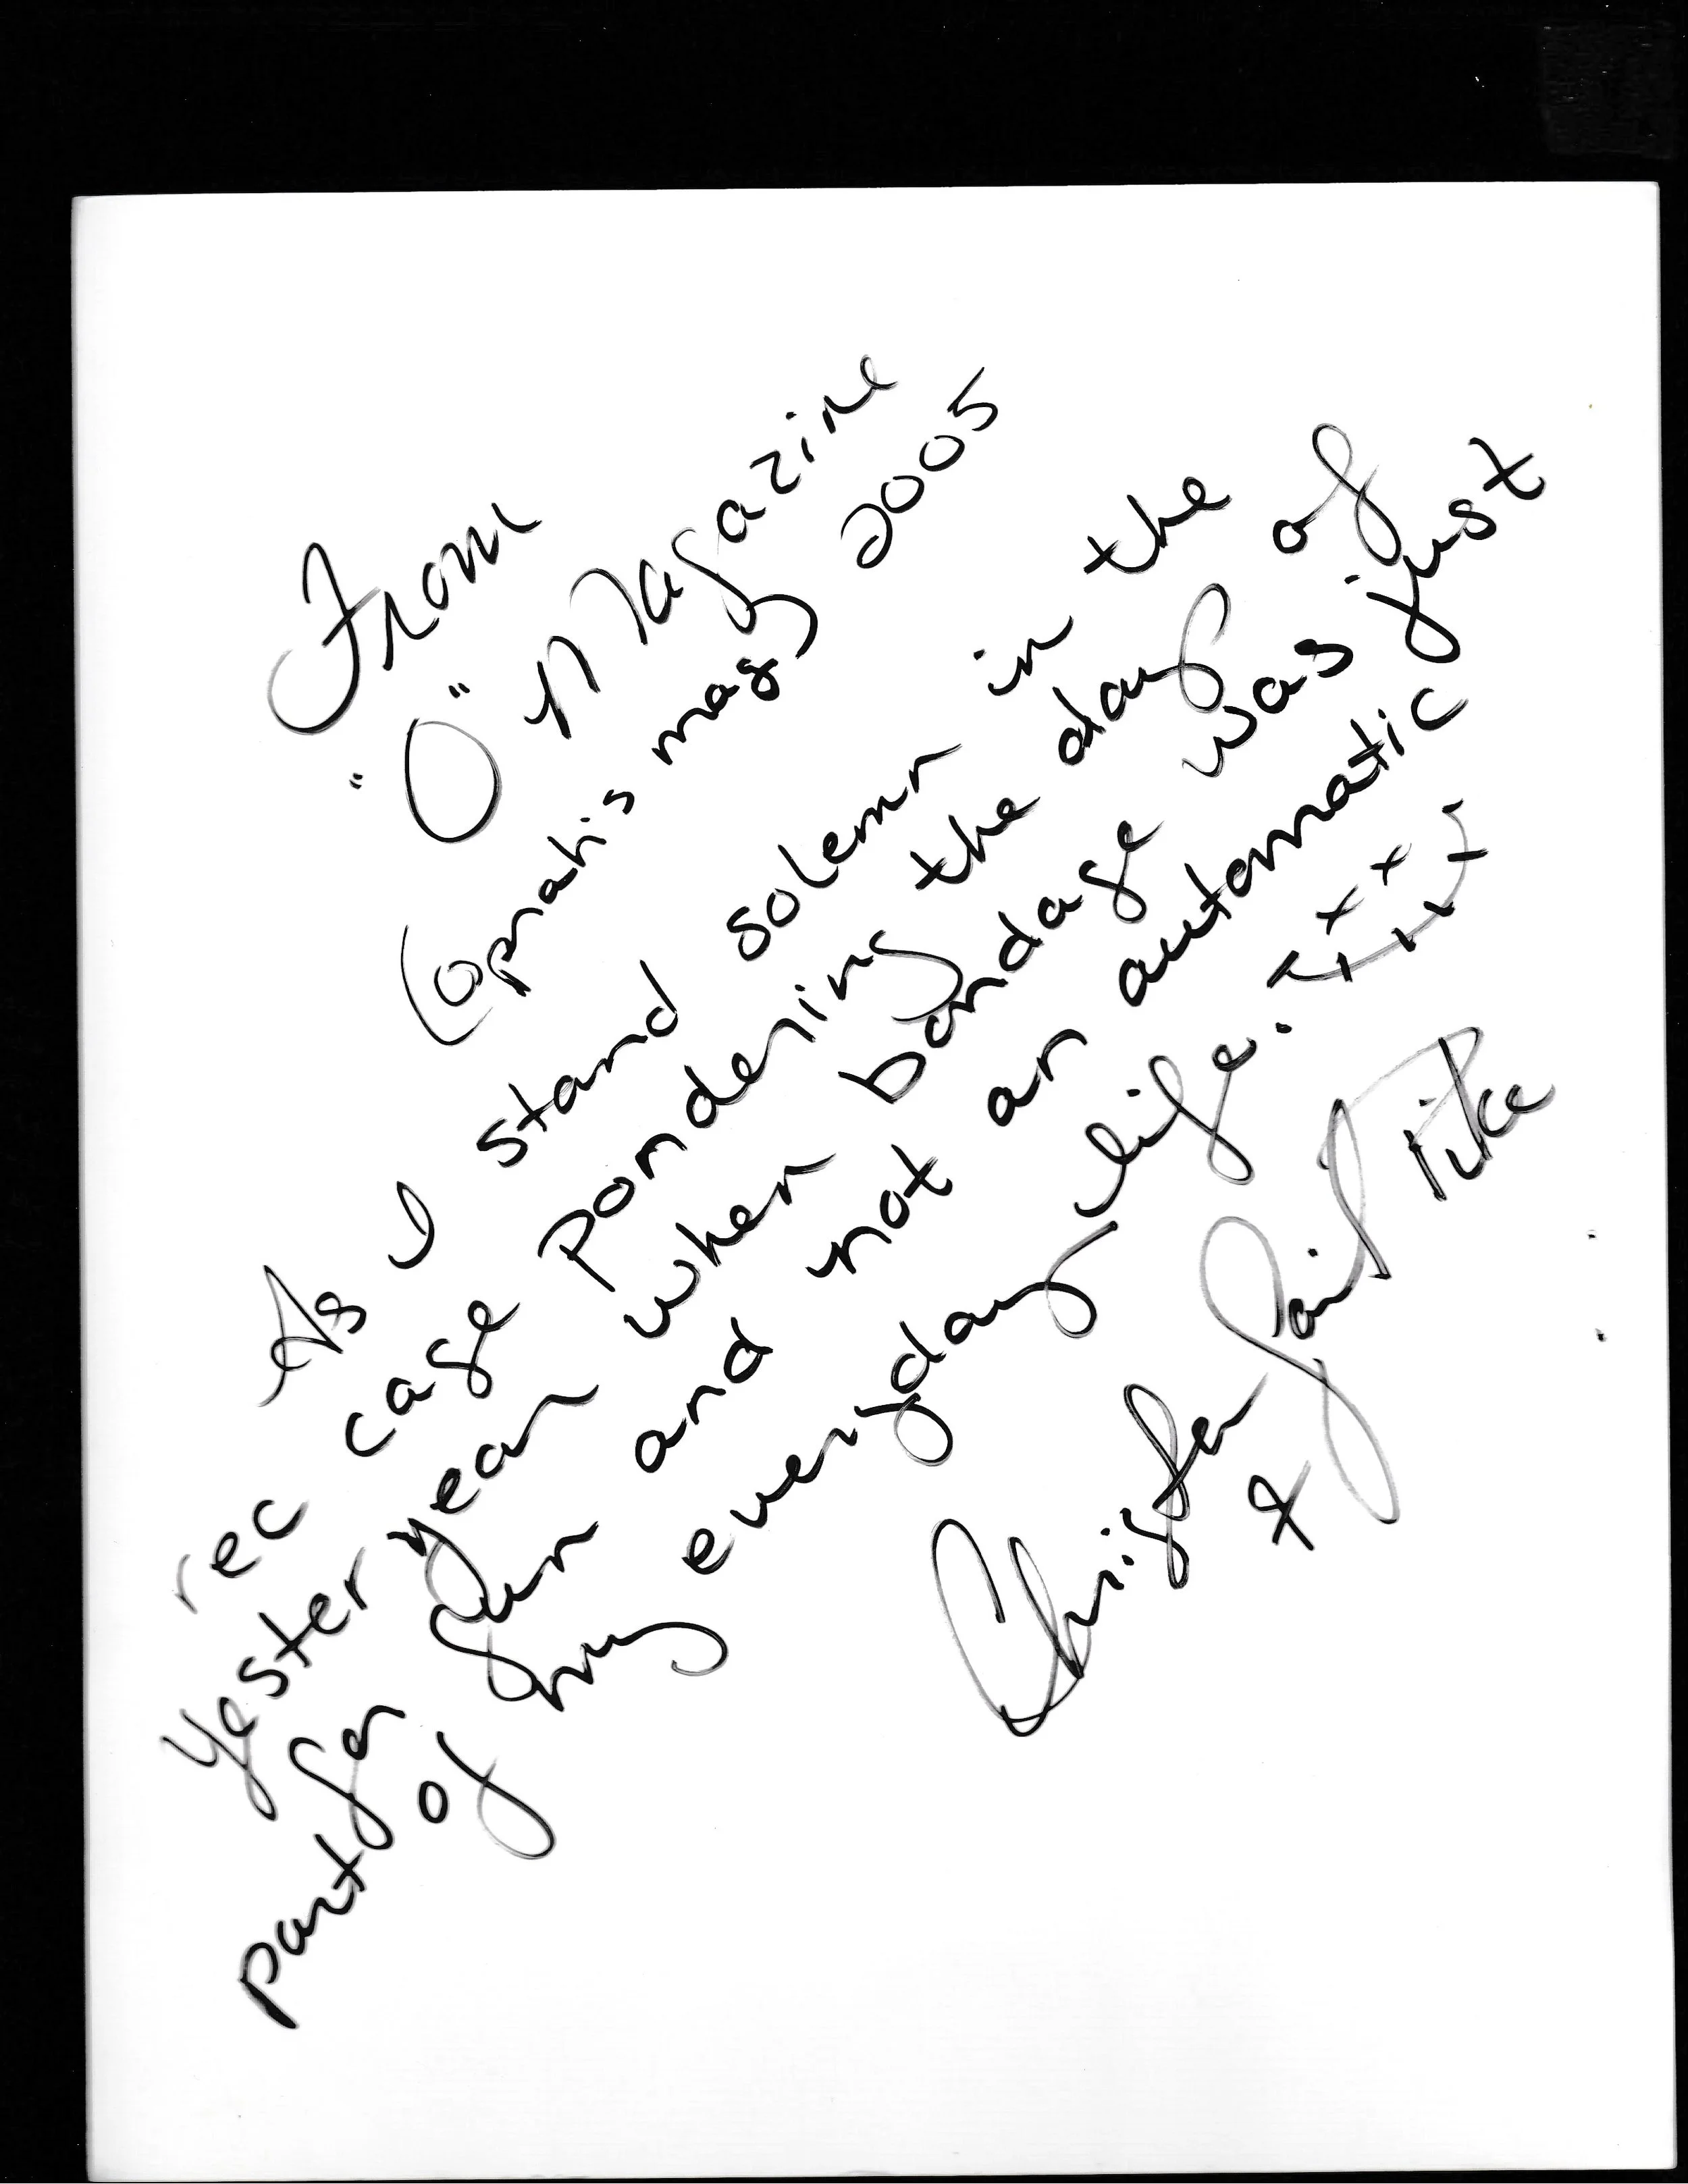 From
"O" Magazine
(oprah's mag) 2005
As I stand solemn in the
rec cage pondering the days of
Yesteryear when bondage was just
part for fun and not an automatic
of my everyday life.
Christa
& Gail Pike